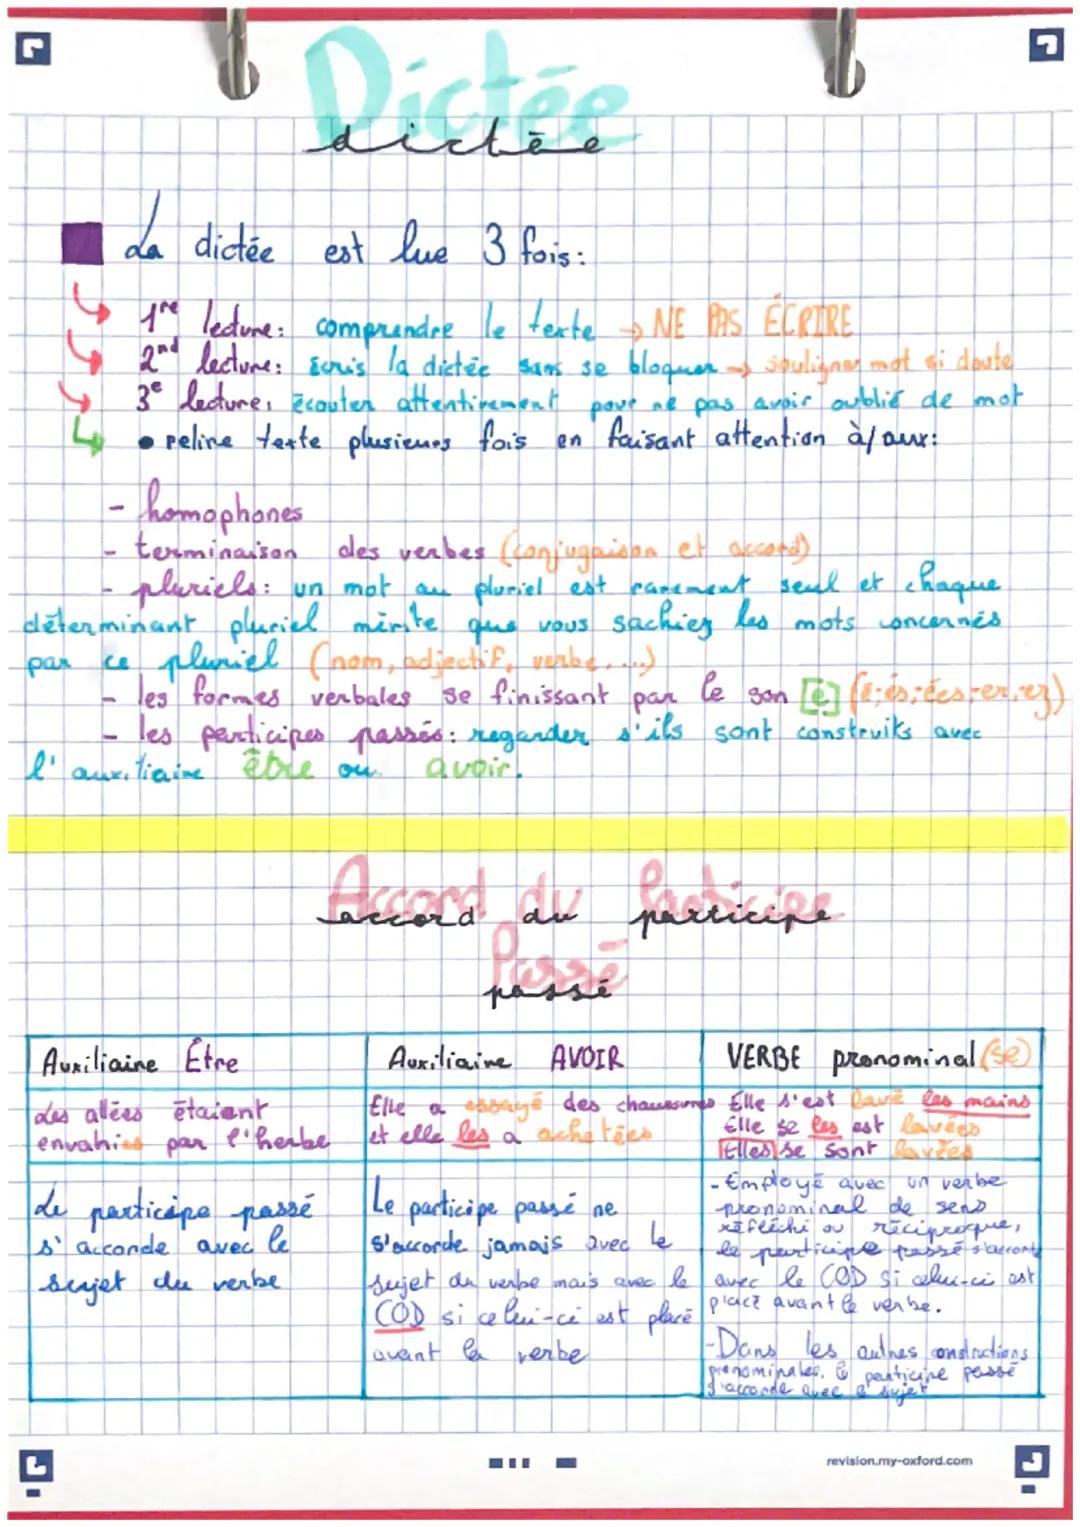 Dictée
dictée
La dictée est lue 3 fois:
1re lecture: comprendre le texte → NE PAS ÉCRIRE
2nd lecture: écris la dictée sans se bloquer → souligner mot si doute
3e lecture: écouter attentivement pour ne pas avoir oublié de mot
• relire texte plusieurs fois en faisant attention à/aux:
- homophones
- terminaison des verbes (conjugaison et accord)
- pluriels: un mot au pluriel est rarement seul et chaque
déterminant pluriel mérite que vous sachiez les mots concernés
par ce pluriel (nom, adjectif, verbe,...)
- les formes verbales se finissant par le son [é] (é;és;ées;er;ez)
- les participes passés: regarder s'ils sont construits avec
l'auxiliaire être ou avoir.
Accord du Participe
accord du participe
Passé
passé
Auxiliaire Être
Les allées étaient
envahies par l'herbe
Le participe passé
s'accorde avec le
sujet du verbe
Auxiliaire AVOIR
Elle a essayé des chaussures
et elle les a achetées
Le participe passé ne
s'accorde jamais avec le
sujet du verbe mais avec le
COD si celui-ci est placé
avant le verbe
VERBE pronominal (se)
Elle s'est lavé les mains
Elle se les est lavées
Elles se sont lavées
- Employé avec un verbe
pronominal de sens
réfléchi ou réciproque,
le participe passé s'accorde
avec le COD si celui-ci est
placé avant le verbe.
- Dans les autres constructions
pronominales, le participe passé
s'accorde avec le sujet
revision.my-oxford.com